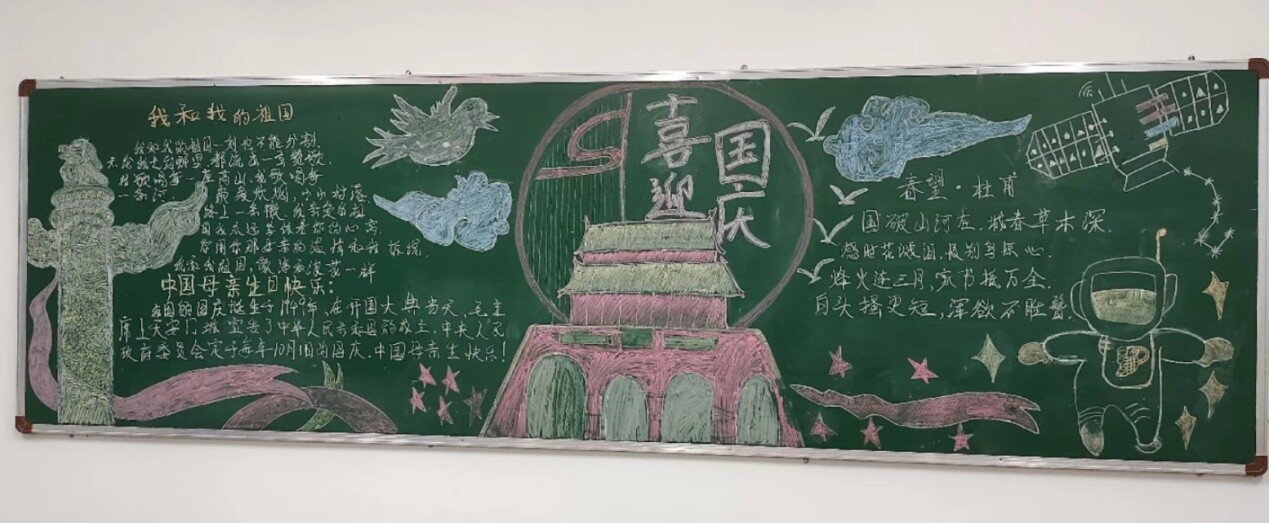 我和我的祖国
我和我的祖国一刻也不能分割
无论我走到哪里都流出一首赞歌
我歌唱每一座高山,我歌唱每
一条河
袅袅炊烟,小小村落
路上一条辙
中国母亲生日快乐:
我国的国庆诞生于1949年,在开国大典当天,毛主
席上天安门城宣告了中华人民共和国的成立,中央人民
政府委员会定于每年10月1日为国庆.中国母亲生快乐!
喜迎
国庆
春望·杜甫
国破山河在,城春草木深.
感时花溅泪,恨别鸟惊心.
烽火连三月,家书抵万金.
白头搔更短,浑欲不胜簪.